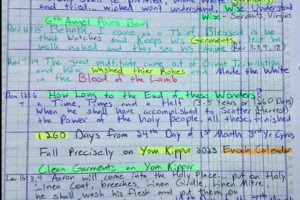 purified, made white
tried, wicked wont understand, Wise
Wise - Servants, Virgins
6th Angel Pours Bowl
Rev 16:15 "Behold I come as a Thief. Blessed is he
that Watches and Keeps his Garments lest he
walk naked and they see his shame (Rev 3:3,4,18)
Rev 7:14 The great multitude came out of Great Tribulation
and Washed thier Robes and Made the White
in the Blood of the Lamb
Dan 12:6 How Long to the End of these Wonders?
7 a Time, Times and a Half (3.5 Years or 1260 Days)
When he shall have accomplished to Scatter
the Power of the Holy people, all these finished
1260 Days from 24th Day of 1st Month 3rd Yr Cyrus
Fall Precisely on Yom Kippur 2023 Enoch Calendar
Clean Garments on Yom Kippur
Lev 16:3,4 Aaron will come into the Holy Place, put on Holy
Linen Coat, breeches, Linen Girdle, Linen Mitre,
he shall wash his flesh and put them on